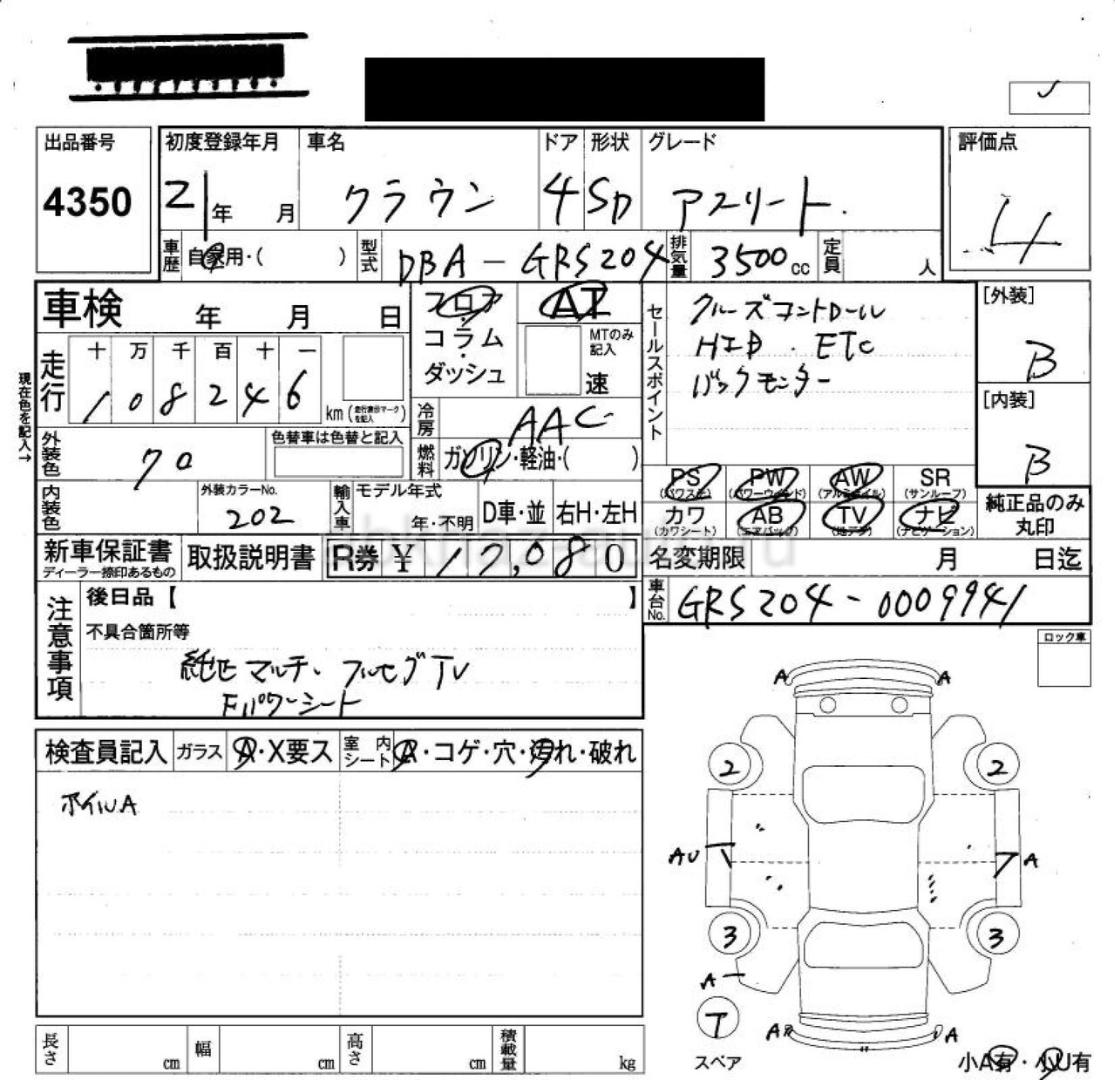 出品番号 初度登録年月 車名 ドア 形状 グレード 評価点
4350 21年 月 クラウン 4 SD アスリート. 4
車歴 自家用・( ) 型式 DBA-GRS204 排気量 3500cc 定員 人
車検 年 月 日
フロア・コラム・ダッシュ
AT
MTのみ記入
速
セールスポイント
クルーズコントロール
HID . ETC
バックモニター
[外装]
B
[内装]
B
現在色を記入→
走行 十 万 千 百 十 一
108246
km (走行表示マークを記入)
冷房 AAC
燃料 ガソリン・軽油・( )
外装色 色替車は色替と記入
クロ
内装色 外装カラーNo. 202
輸入車 モデル年式 年・不明 D車・並 右H・左H
PS (パワステ) PW (パワーウィンド) AW (アルミホイル) SR (サンルーフ)
カワ (カワシート) AB (エアバッグ) TV (地デジ) ナビ (ナビゲーション)
純正品のみ丸印
新車保証書 ディーラー捺印あるもの 取扱説明書 R券 ¥ 17,080
名変期限 月 日迄
車台No. GRS204-0009941
注意事項
後日品【 】
不具合箇所等
純正マルチ、フルセグTV
Fパワーシート
ロック車
検査員記入 ガラス A・X要ス 室内シート A・コゲ・穴・汚れ・破れ
ホイルA
A A
2 2
AU A
3 3
A
T
スペア
A A
小A有・小U有
長さ cm 幅 cm 高さ cm 積載量 kg